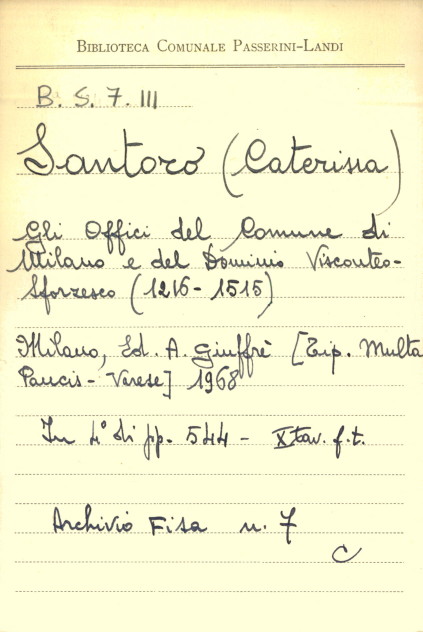 BIBLIOTECA COMUNALE PASSERINI-LANDI
B. S. 7. III
Santoro (Caterina)
Gli Offici del Comune di
Milano e del Dominio Visconteo-
Sforzesco (1216-1515)
Milano, Ed. A. Giuffrè [Tip. Multa
Paucis-Varese] 1968
In 4° di pp. 544 - X tav. f.t.
Archivio Fisa n. 7
C